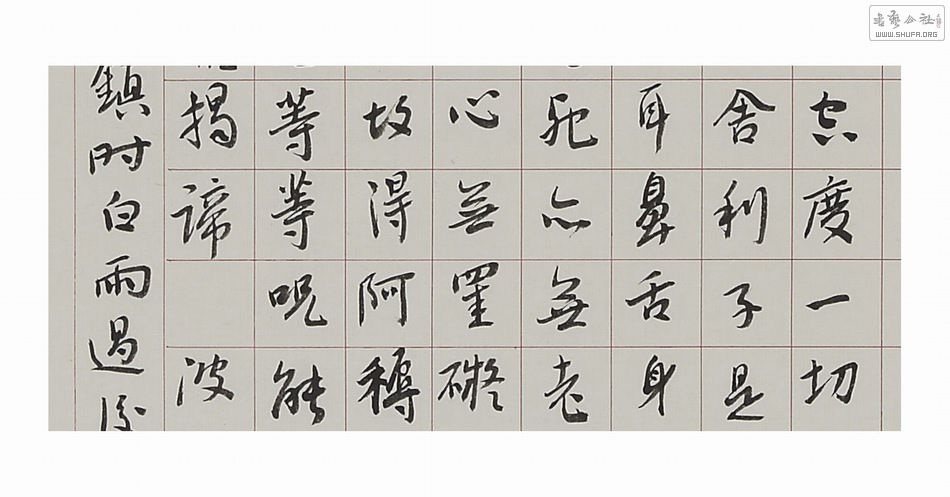 空度一切
舍利子是
耳鼻舌身
死亦無老
心無罣礙
故得阿耨
等等呪能
揭諦 波
鎮时白雨過
書藝公社
WWW.SHUFA.ORG